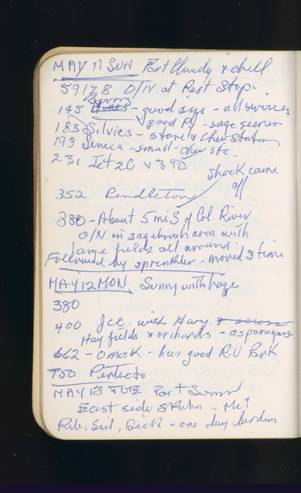 MAY 11 SUN Part Cloudy & chill
59178 O/N at Rest Stop.
145 Burns - good size - all services
183 Silvies - store & Chev Station
193 Seneca - small - Chev Stc.
231 Jct 26 & 390
shock came
off
352 Pendleton
380 - About 5 mi S of Col River
O/N in sagebrush area with
large fields all around
Followed by sprinkler - moved 3 times
MAY 12 MON Sunny with haze
380
400 Jct. with Hwy
Hay fields & orchards - asparagus
662 - Omak - has good RV Park
750 Penticton
MAY 13 TUE Part Sunny
East side Skaha - Met
Rib, Sid, Dick - one day